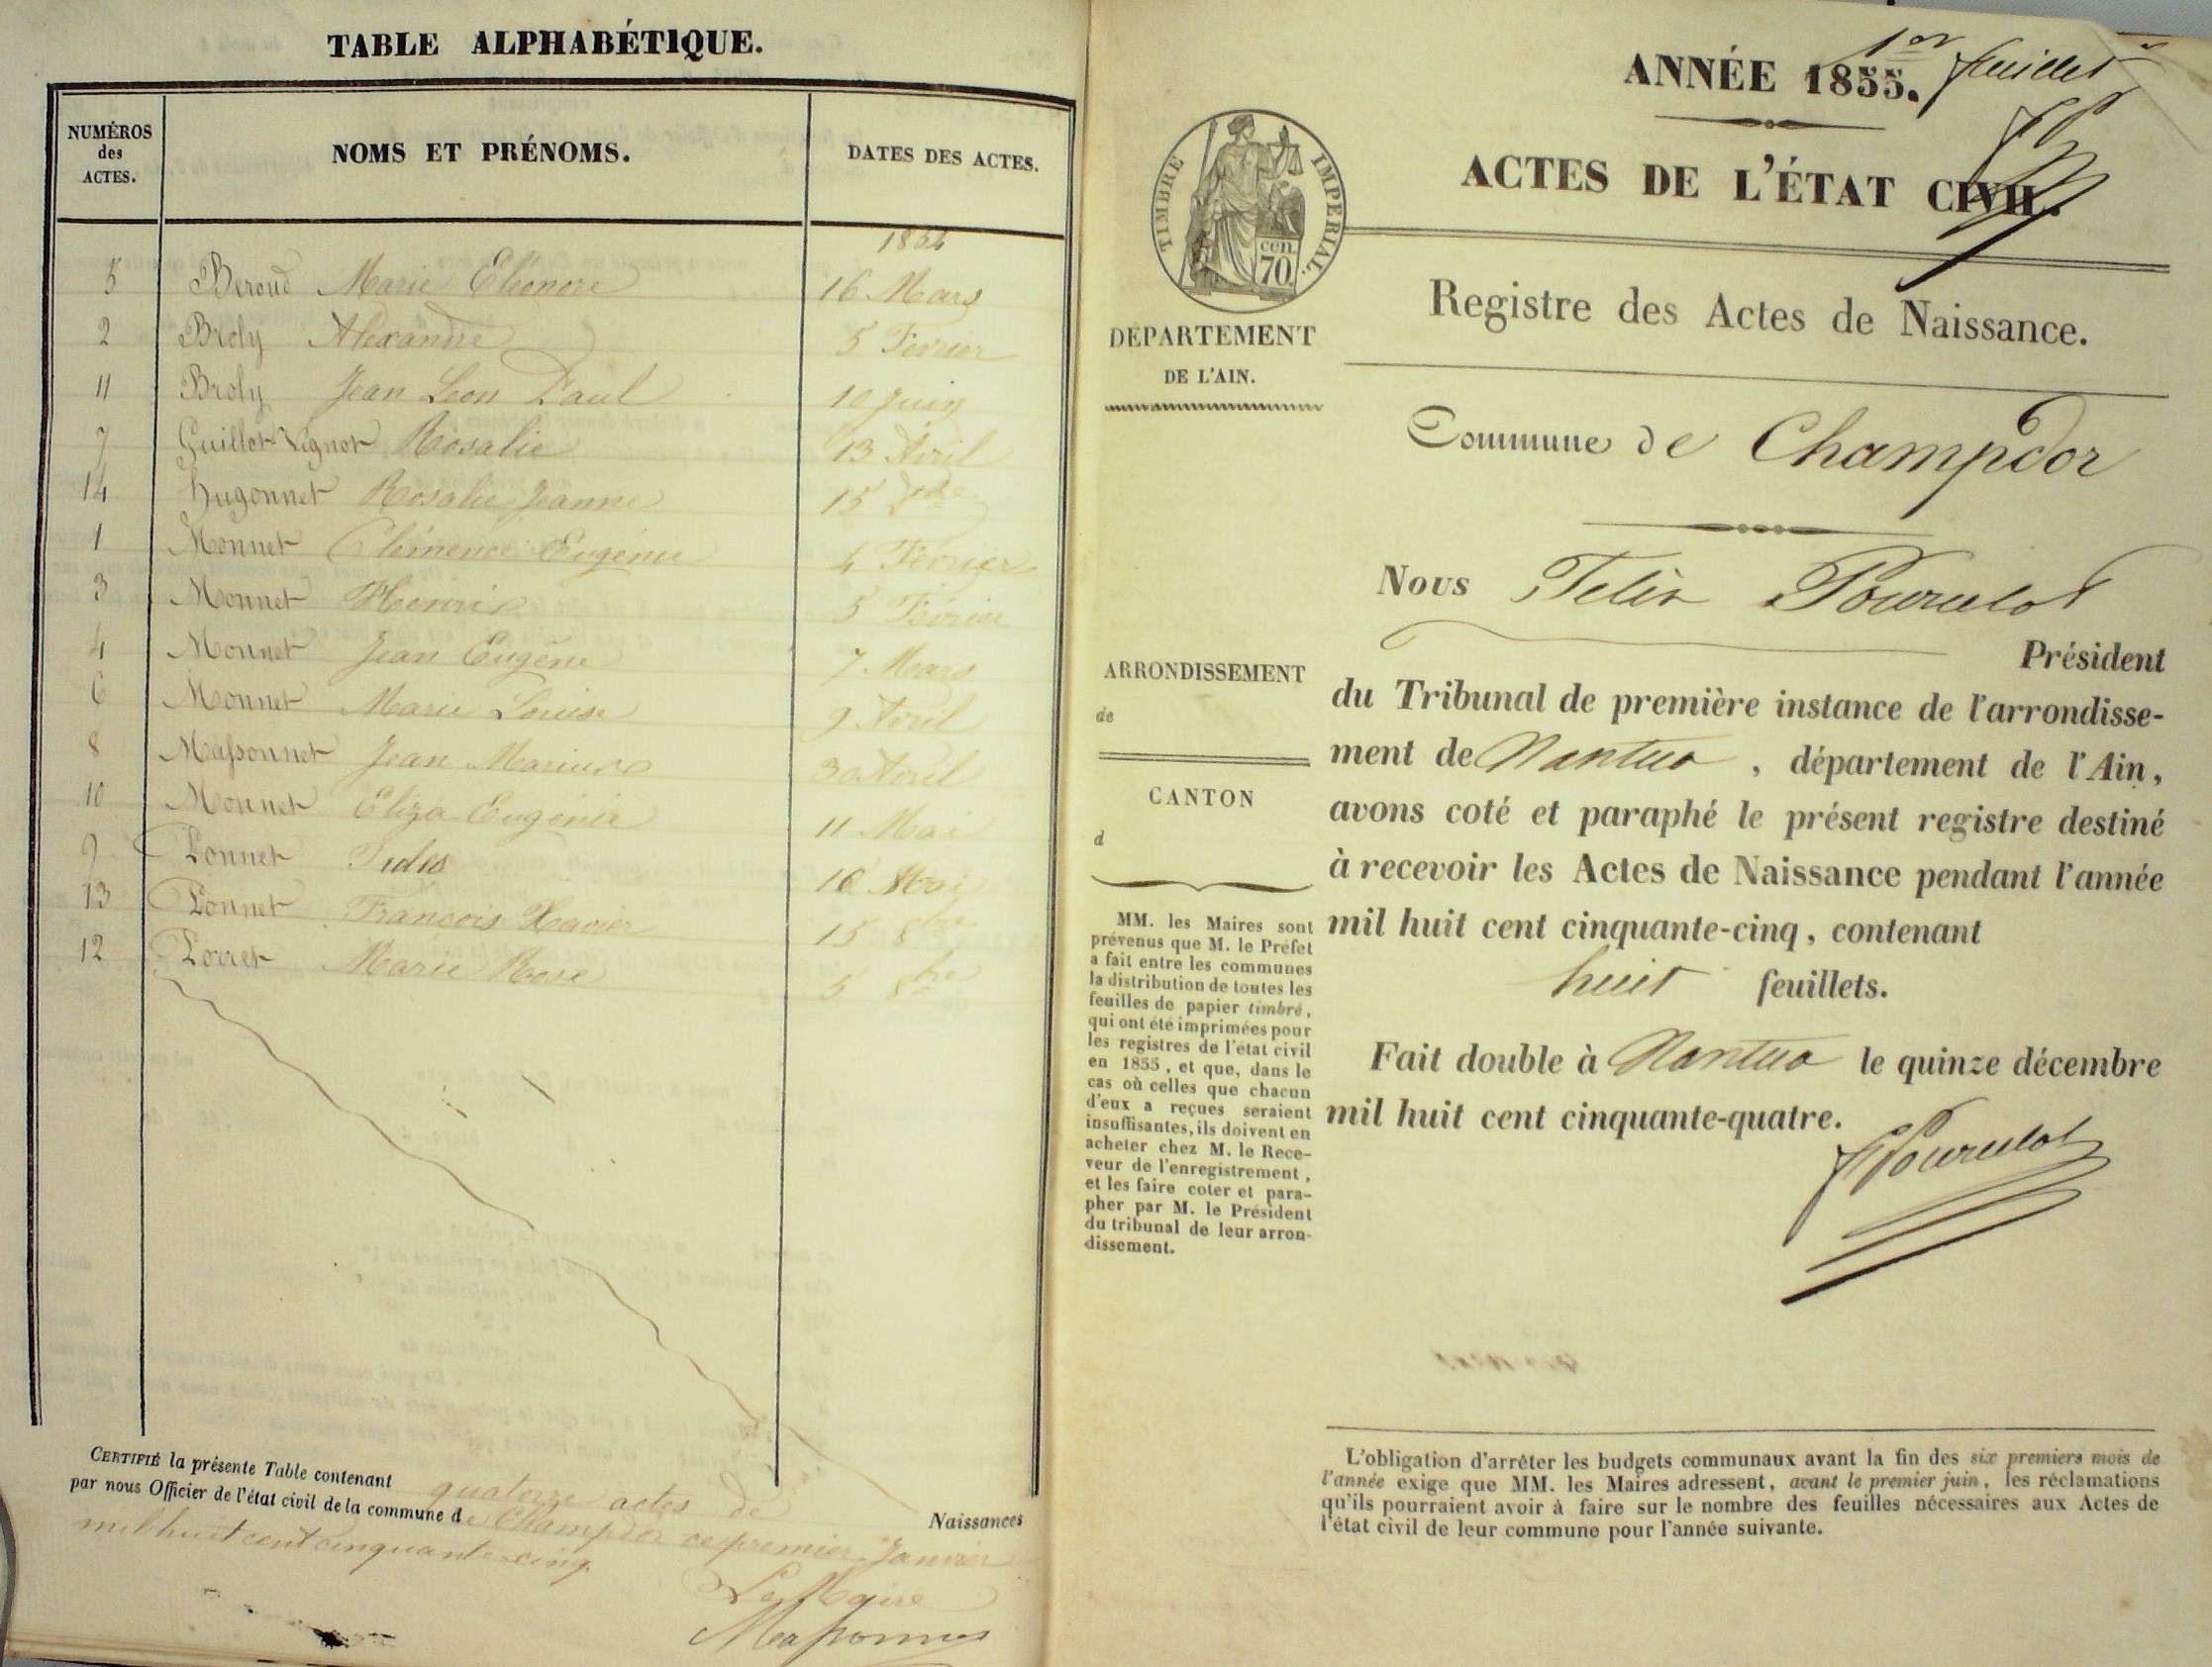 TABLE ALPHABÉTIQUE.
NUMÉROS
des
ACTES.
NOMS ET PRÉNOMS.
DATES DES ACTES.
1854
5 Beroud Marie Eléonore 16 Mars
2 Broly Alexandre 5 Fevrier
11 Broly Jean Leon Paul 10 Juin
7 Guillot Vignot Rosalie 13 Avril
14 Hugonnet Rosalie Jeanne 15
1 Monnet Clémence Eugénie 4 Février
3 Monnet Henri 5 Février
4 Monnet Jean Eugène 7 Mars
6 Monnet Marie Louise 9 Avril
8 Maſsonnet Jean Marius 30 Avril
10 Monnet Eliza Eugénie 11 Mai
9 Ponnet 16 Mai
13 Ponnet François Xavier 15 8bre
12 Porret Marie Rose 5 8bre
CERTIFIÉ la présente Table contenant quatorze actes de Naissances
par nous Officier de l'état civil de la commune de Champdor ce premier Janvier
mil huit cent cinquante-cinq.
Le Maire
Maſsonnet
1er feuillet
ANNÉE 1855.
ACTES DE L'ÉTAT CIVIL.
TIMBRE IMPERIAL.
cen.
70
DÉPARTEMENT
DE L'AIN.
Registre des Actes de Naissance.
Commune de Champdor
Nous Félix Pourcelot
Président
du Tribunal de première instance de l'arrondisse-
ment de Nantua, département de l'Ain,
avons coté et paraphé le présent registre destiné
à recevoir les Actes de Naissance pendant l'année
mil huit cent cinquante-cinq, contenant
huit feuillets.
Fait double à Nantua le quinze décembre
mil huit cent cinquante-quatre.
F Pourcelot
ARRONDISSEMENT
de
CANTON
d
MM. les Maires sont
prévenus que M. le Préfet
a fait entre les communes
la distribution de toutes les
feuilles de papier timbré,
qui ont été imprimées pour
les registres de l'état civil
en 1855, et que, dans le
cas où celles que chacun
d'eux a reçues seraient
insuffisantes, ils doivent en
acheter chez M. le Rece-
veur de l'enregistrement,
et les faire coter et para-
pher par M. le Président
du tribunal de leur arron-
dissement.
L'obligation d'arrêter les budgets communaux avant la fin des six premiers mois de
l'année exige que MM. les Maires adressent, avant le premier juin, les réclamations
qu'ils pourraient avoir à faire sur le nombre des feuilles nécessaires aux Actes de
l'état civil de leur commune pour l'année suivante.